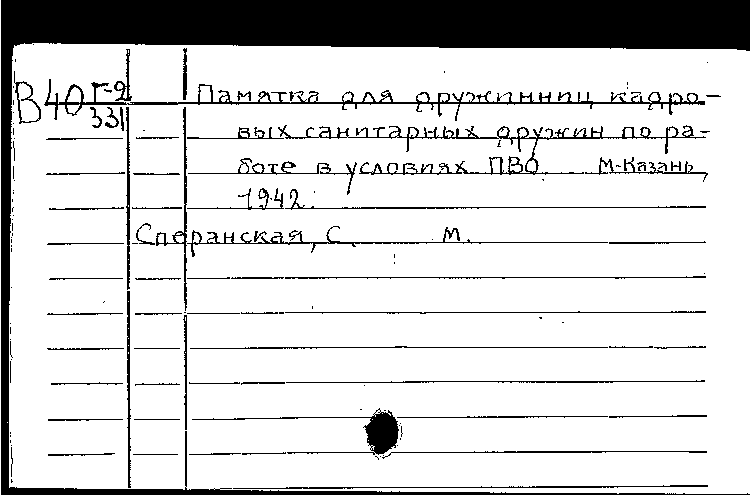 В 40 Г-2
331
Памятка для дружинниц кадро-
вых санитарных дружин по ра-
боте в условиях ПВО. М-Казань,
1942.
Сперанская, С. М.